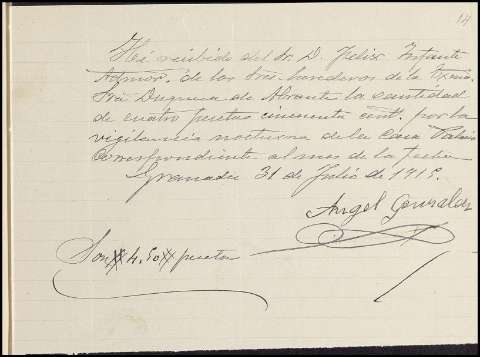 14
He recibido del Sr. D. Felix Infante
Admor. de los Sres. herederos de la Excma.
Sra Duquesa de Abrante la cantidad
de cuatro pesetas cincuenta cent. por la
vigilancia nocturna de la Casa Palacio
Correspondiente al mes de la fecha
Granada 31 de Julio de 1915.
Angel Gonzalez
Son 4.50 pesetas